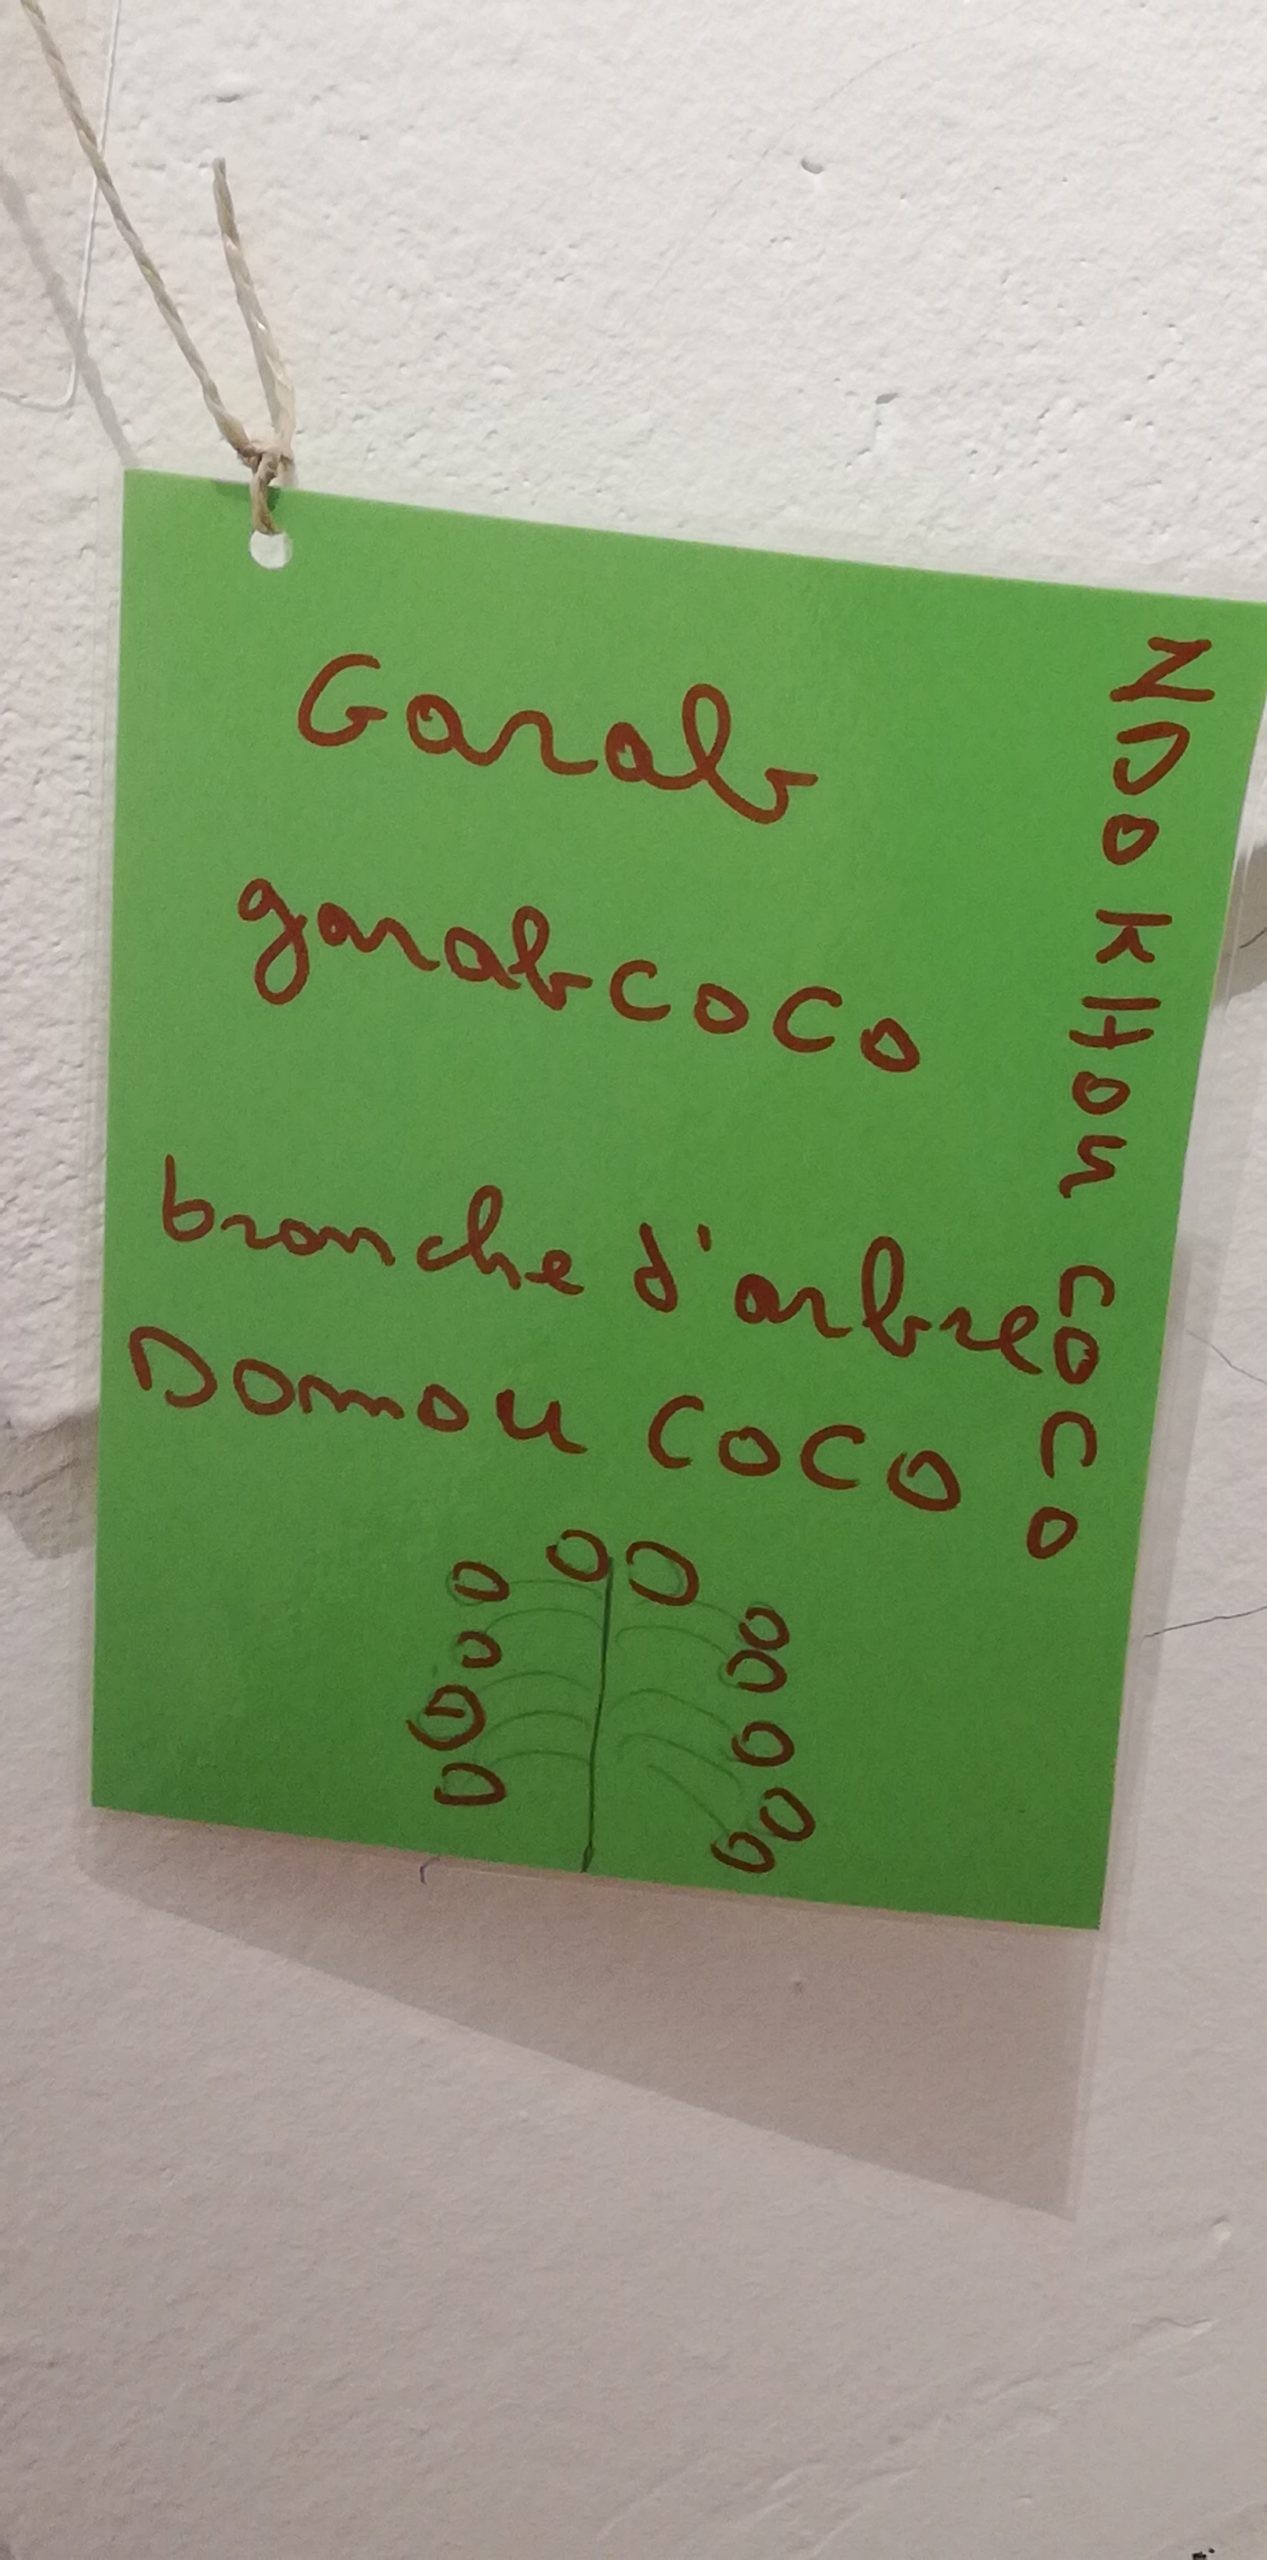 Garab
garab coco
branche d'arbre
Domou coco
NDOKHOU COCO